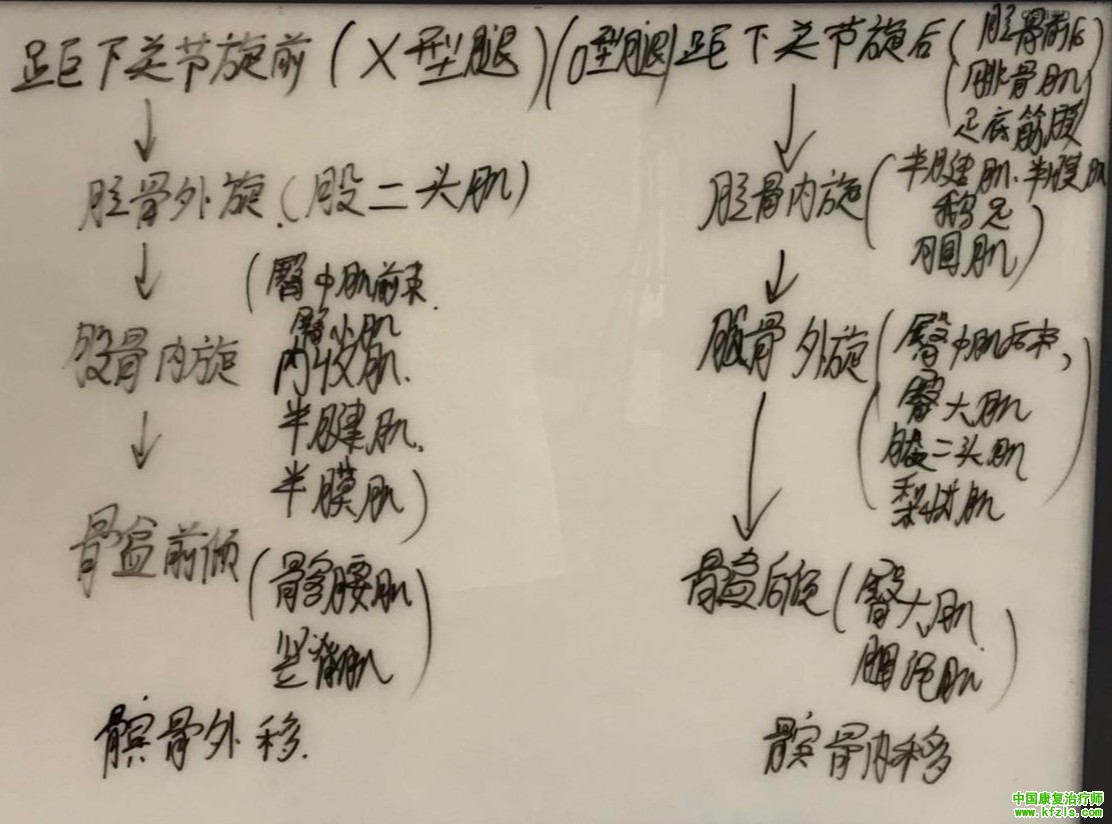 足巨下关节旋前(X型腿)
↓
胫骨外旋.(股二头肌)
↓
股骨内旋
(臀中肌前束.
臀小肌
内收肌.
半腱肌.
半膜肌)
↓
骨盆前倾
(髂腰肌
竖脊肌)
髌骨外移.
(O型腿)足巨下关节旋后
(胫骨前后
腓骨肌
足底筋膜)
↓
胫骨内旋
(半腱肌.半膜肌
鹅足
腘肌)
↓
股骨外旋
(臀中肌后束,
臀大肌
股二头肌
梨状肌)
↓
骨盆后倾
(臀大肌
腘绳肌)
髌骨内移
中国康复治疗师
www.kfzls.com